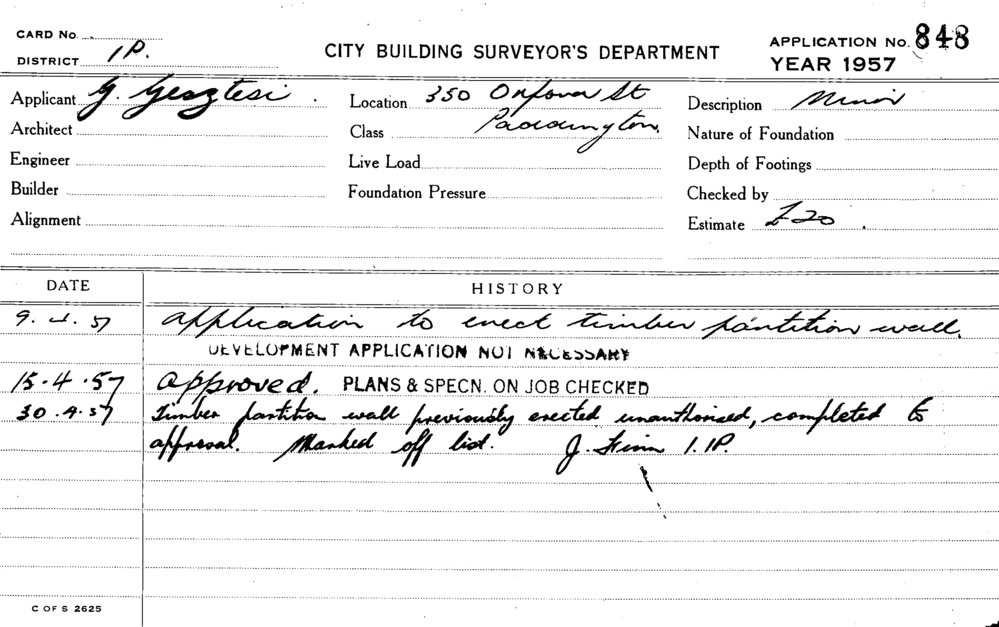 CARD No.
DISTRICT 1P.
CITY BUILDING SURVEYOR'S DEPARTMENT
APPLICATION No. 848
YEAR 1957
Applicant G. Gesztesi.
Location 350 Oxford St
Description Minor
Architect
Class Paddington.
Nature of Foundation
Engineer
Live Load
Depth of Footings
Builder
Foundation Pressure
Checked by
Alignment
Estimate £20.
DATE
HISTORY
9.4.57 Application to erect timber partition wall.
DEVELOPMENT APPLICATION NOT NECESSARY
15.4.57 Approved. PLANS & SPECN. ON JOB CHECKED
30.4.57 Timber partition wall previously erected unauthorised, completed to
approval. Marked off list. J. 1.P.
C OF S 2625